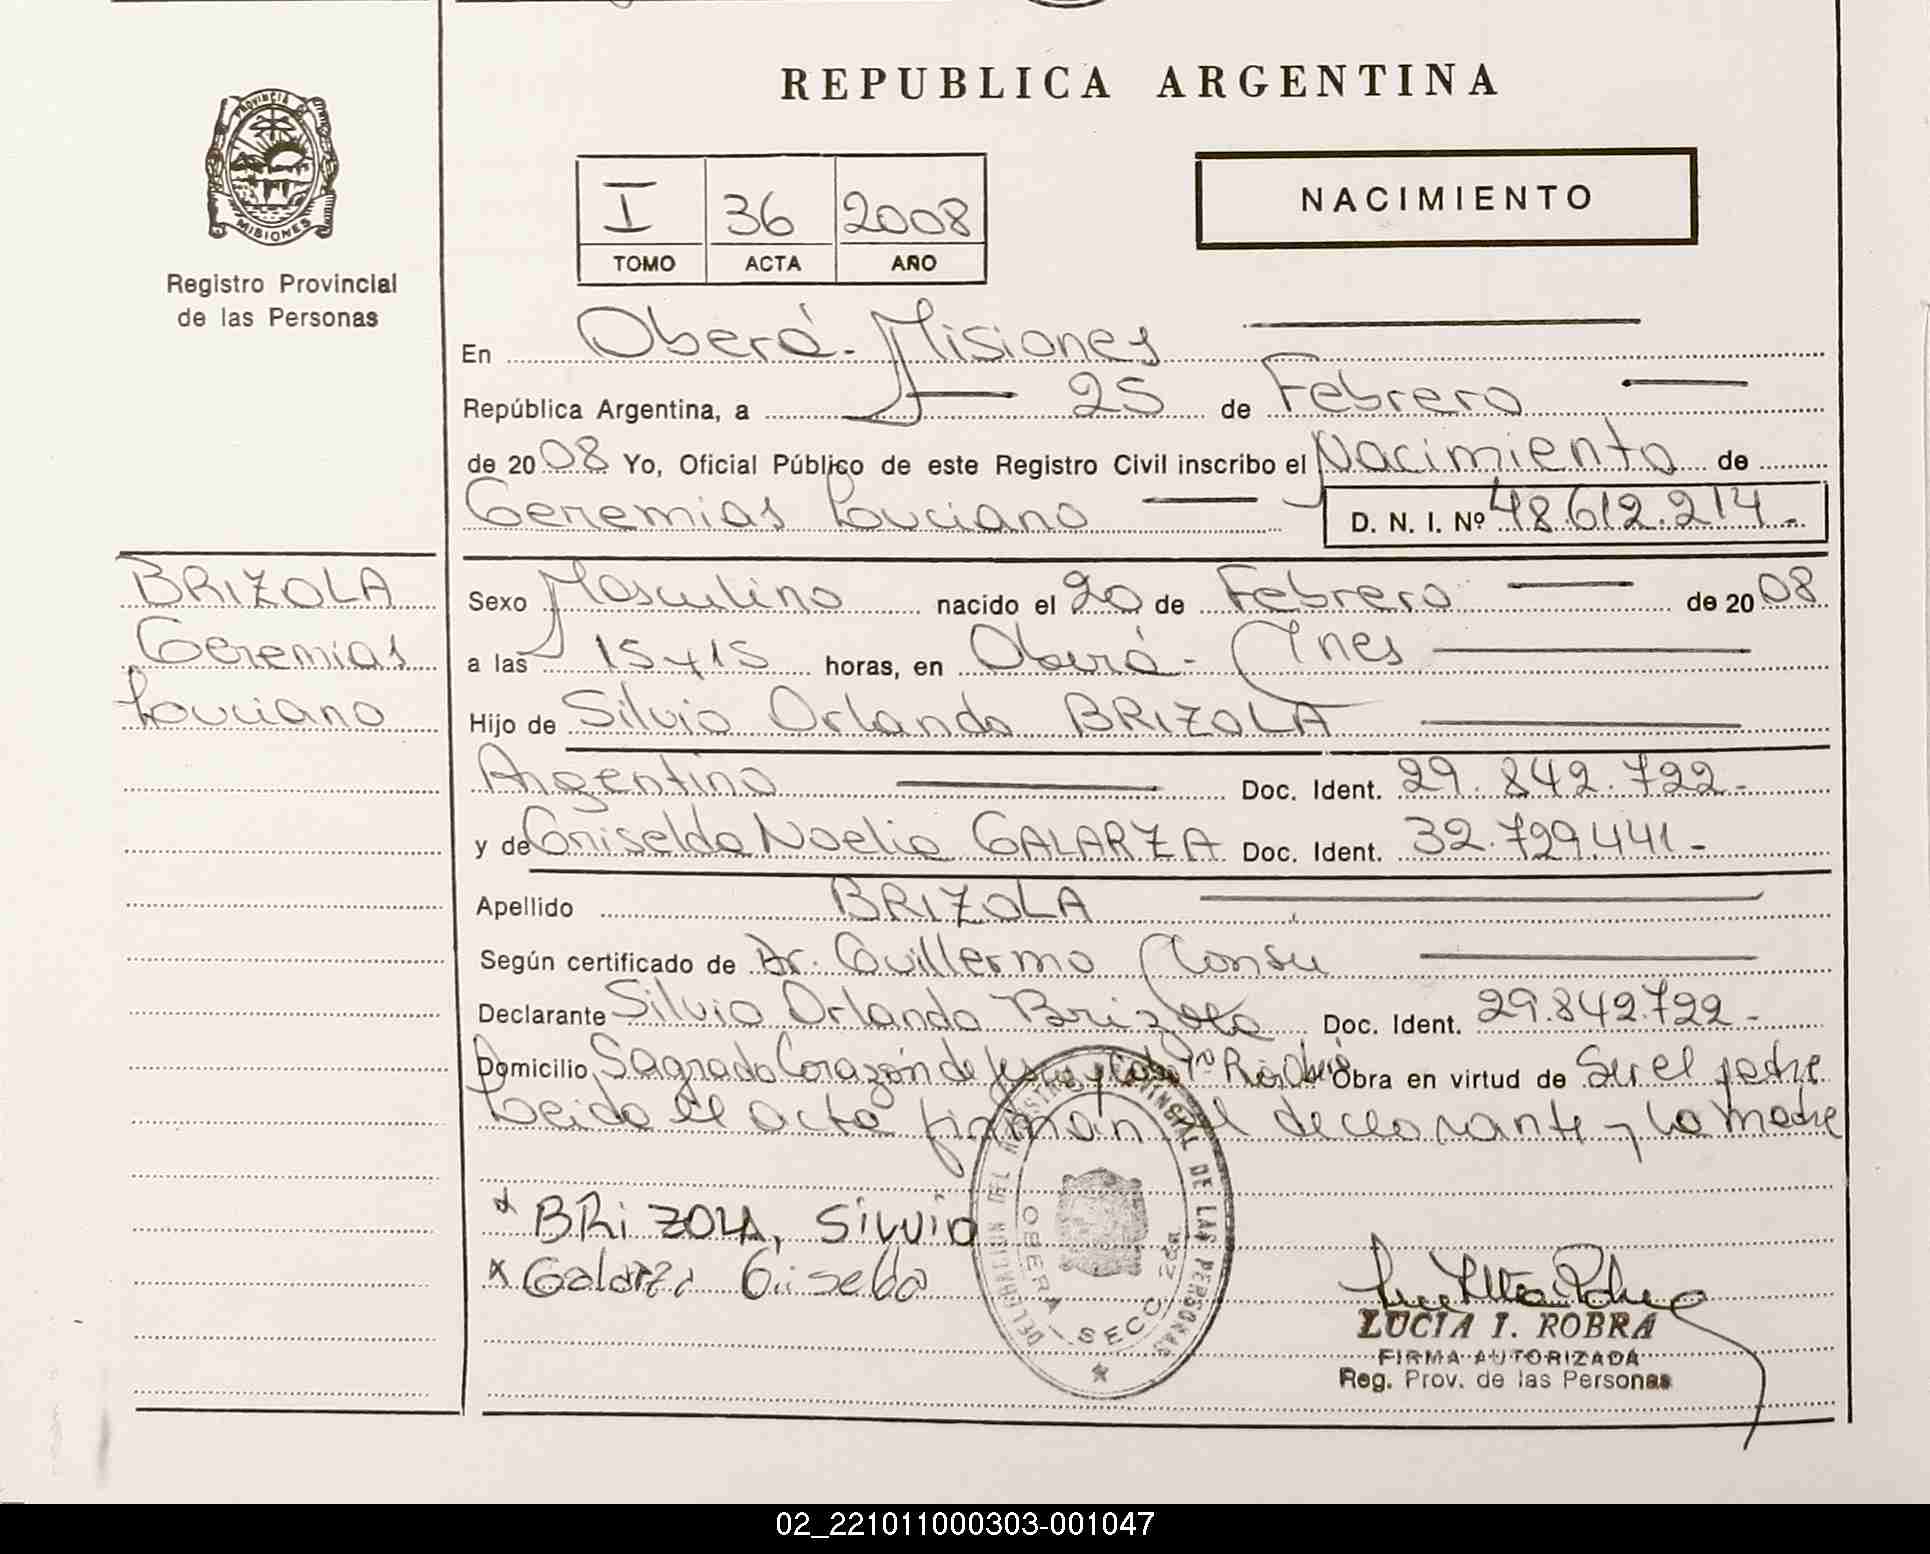 REPUBLICA ARGENTINA
PROVINCIA DE
MISIONES
Registro Provincial
de las Personas
I 36 2008
TOMO ACTA AÑO
NACIMIENTO
En Oberá - Misiones
República Argentina, a 25 de Febrero
de 2008 Yo, Oficial Público de este Registro Civil inscribo el Nacimiento de
Geremias Luciano D. N. I. Nº 48.612.214.-
BRIZOLA
Geremias
Luciano
Sexo Masculino nacido el 20 de Febrero de 2008
a las 15 y 15 horas, en Oberá - Mnes
Hijo de Silvio Orlando BRIZOLA
Argentino Doc. Ident. 29.842.722.-
y de Griselda Noelia GALARZA Doc. Ident. 32.729.441.-
Apellido BRIZOLA
Según certificado de Dr. Guillermo
Declarante Silvio Orlando Brizola Doc. Ident. 29.842.722.-
Domicilio Sagrado Corazón de Jesus y Obra en virtud de Ser el padre
Leida el acta firman el declarante y la madre
x BRiZOLA, Silvio
x Galarza Griselda
DELEGACION DEL REGISTRO PROVINCIAL DE LAS PERSONAS
OBERA SECC. 2da
LUCIA I. ROBRA
FIRMA AUTORIZADA
Reg. Prov. de las Personas
02_221011000303-001047